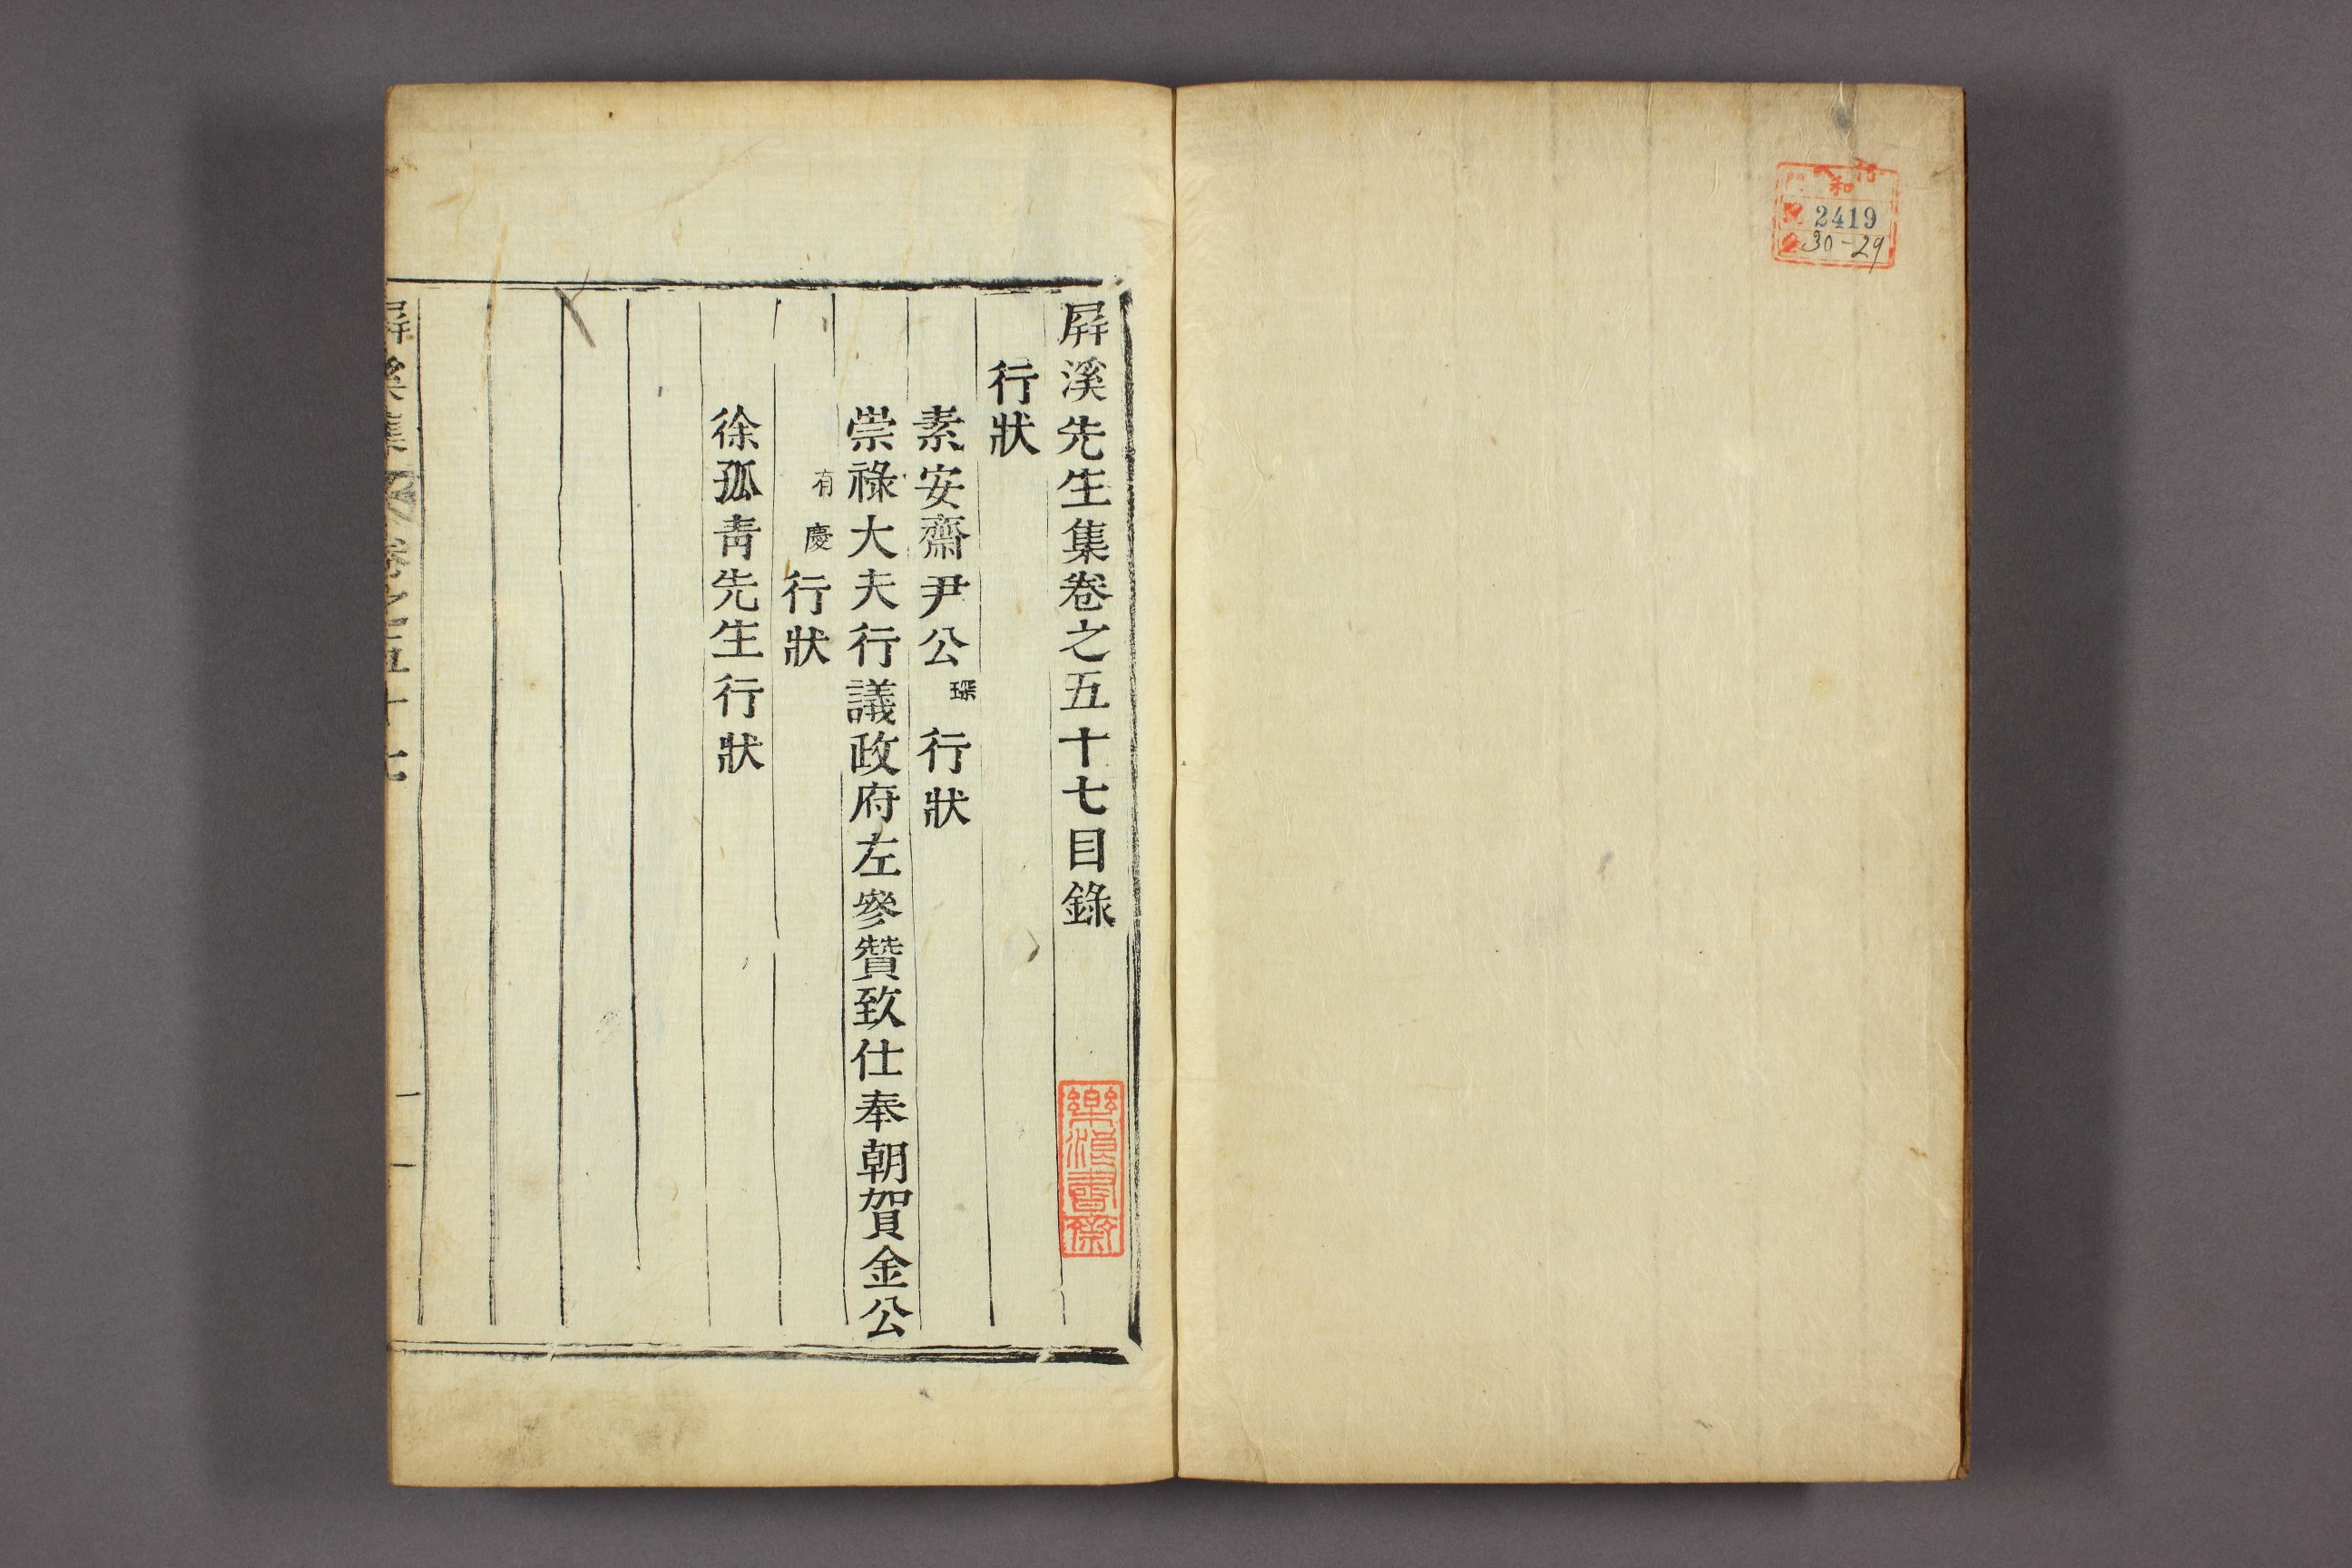 2419
30-29
屛溪先生集卷之五十七目錄
行狀
素安齋尹公琛行狀
崇祿大夫行議政府左參贊致仕奉朝賀金公
有慶行狀
徐孤靑先生行狀
屛溪集 卷之五十七 一